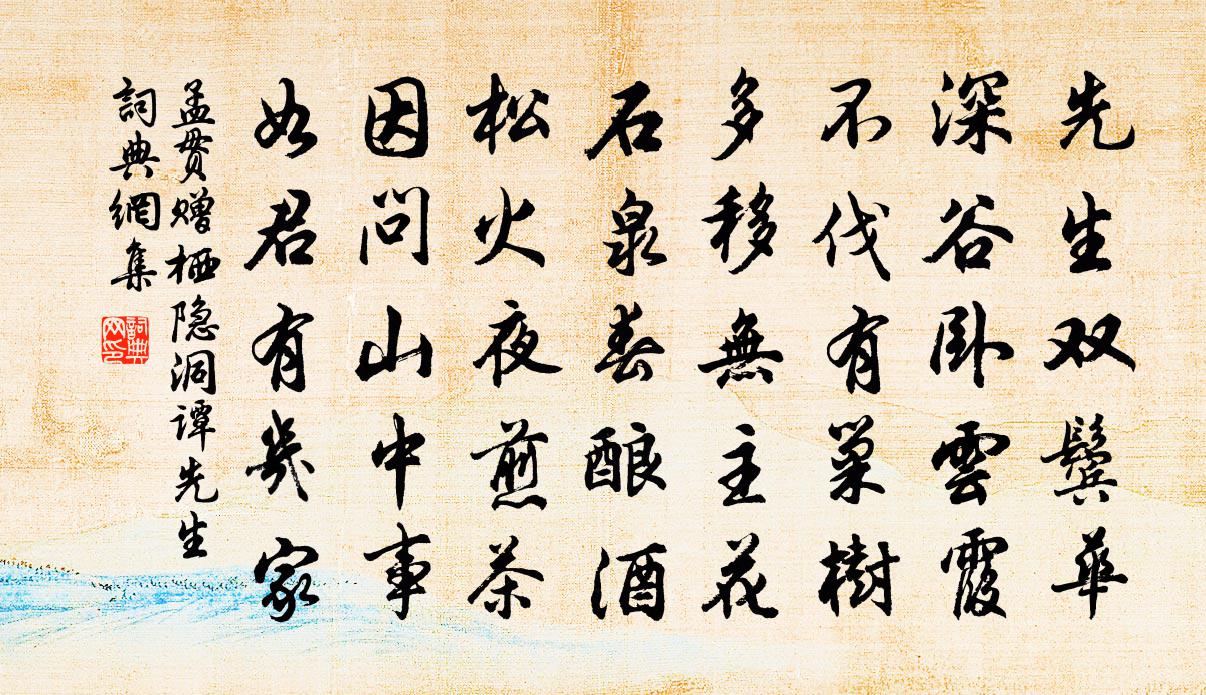 先生双鬓华
深谷卧雲霞
不伐有巢樹
多移無主花
石泉春酿酒
松火夜煎茶
因问山中事
如君有幾家
孟贯赠栖隐洞谭先生
詞典網集
詞典网印